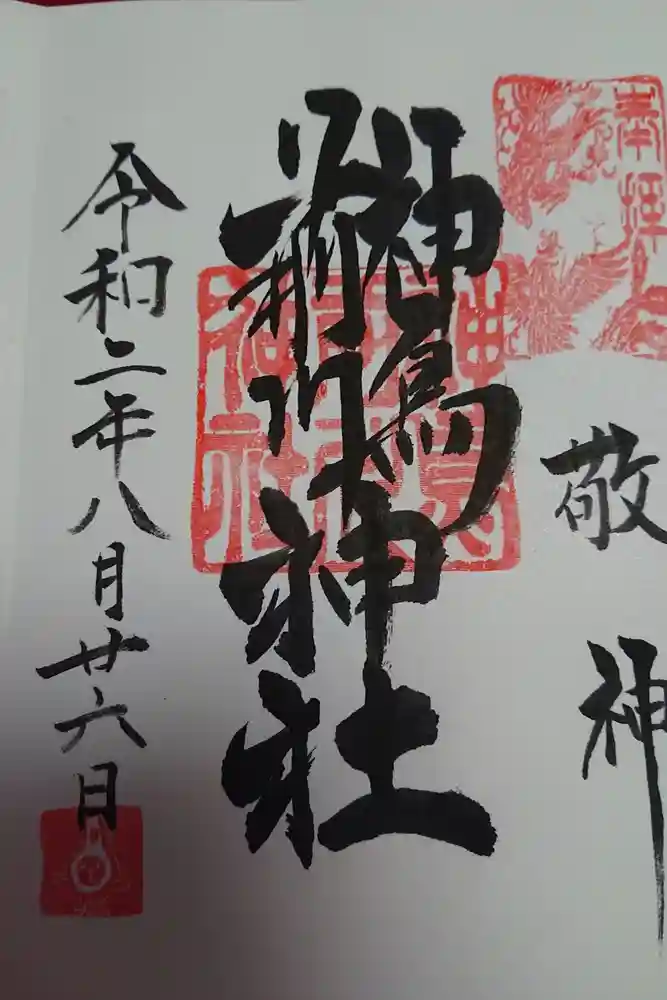 奉拝
敬神
神鳥前川神社
令和二年八月廿六日